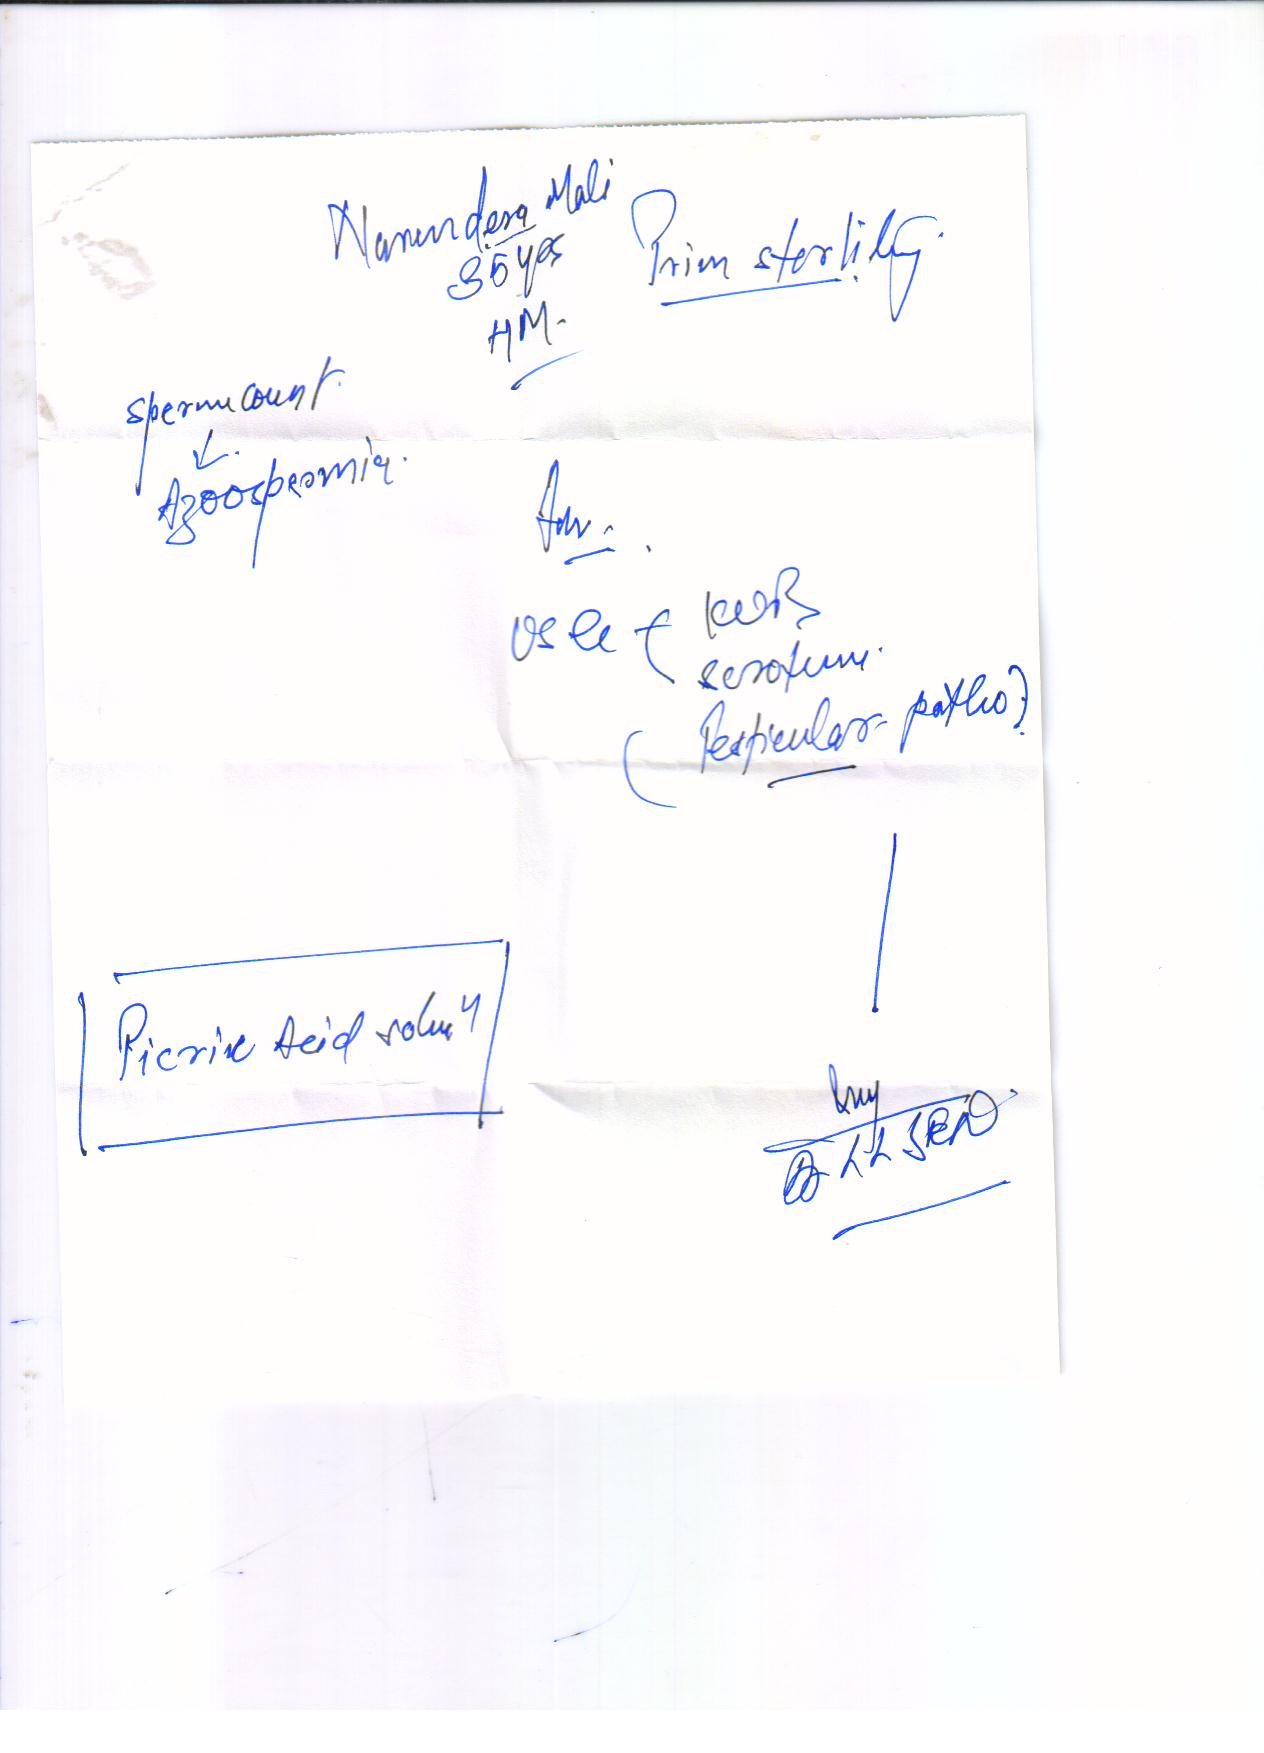 Narendera Mali
35 yrs
HM.
Prim sterility.
Spermcount.
Azoospermia.
Adv.
USG
KUB
scrotum.
Testicular patho?
Picric Acid soluy
Dr L L SEN